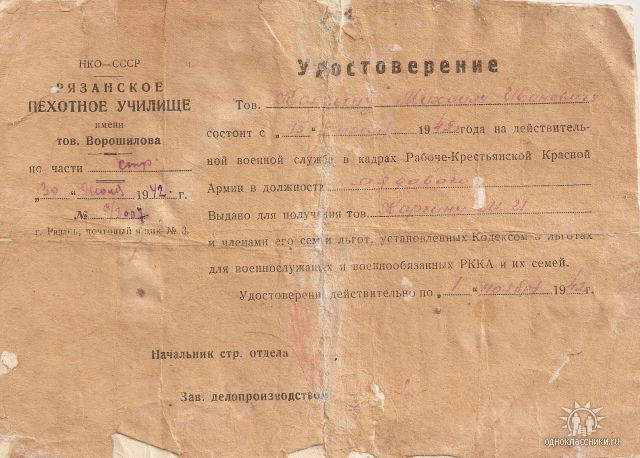 НКО—СССР
РЯЗАНСКОЕ
ПЕХОТНОЕ УЧИЛИЩЕ
имени
тов. Ворошилова
по части стр
„30“ Июля 1942 г.
№ 3007
г. Рязань, почтовый ящик № 3.
Удостоверение
Тов. Михаил Иванович
состоит с „15“ 1942 года на действитель-
ной военной службе в кадрах Рабоче-Крестьянской Красной
Армии в должности рядового
Выдано для получения тов. М. И
и членами его семьи льгот, установленных Кодексом о льготах
для военнослужащих и военнообязанных РККА и их семей.
Удостоверени действительно по „1“ ноября 1942 г.
Начальник стр. отдела
Зав. делопроизводством
одноклассники.ru